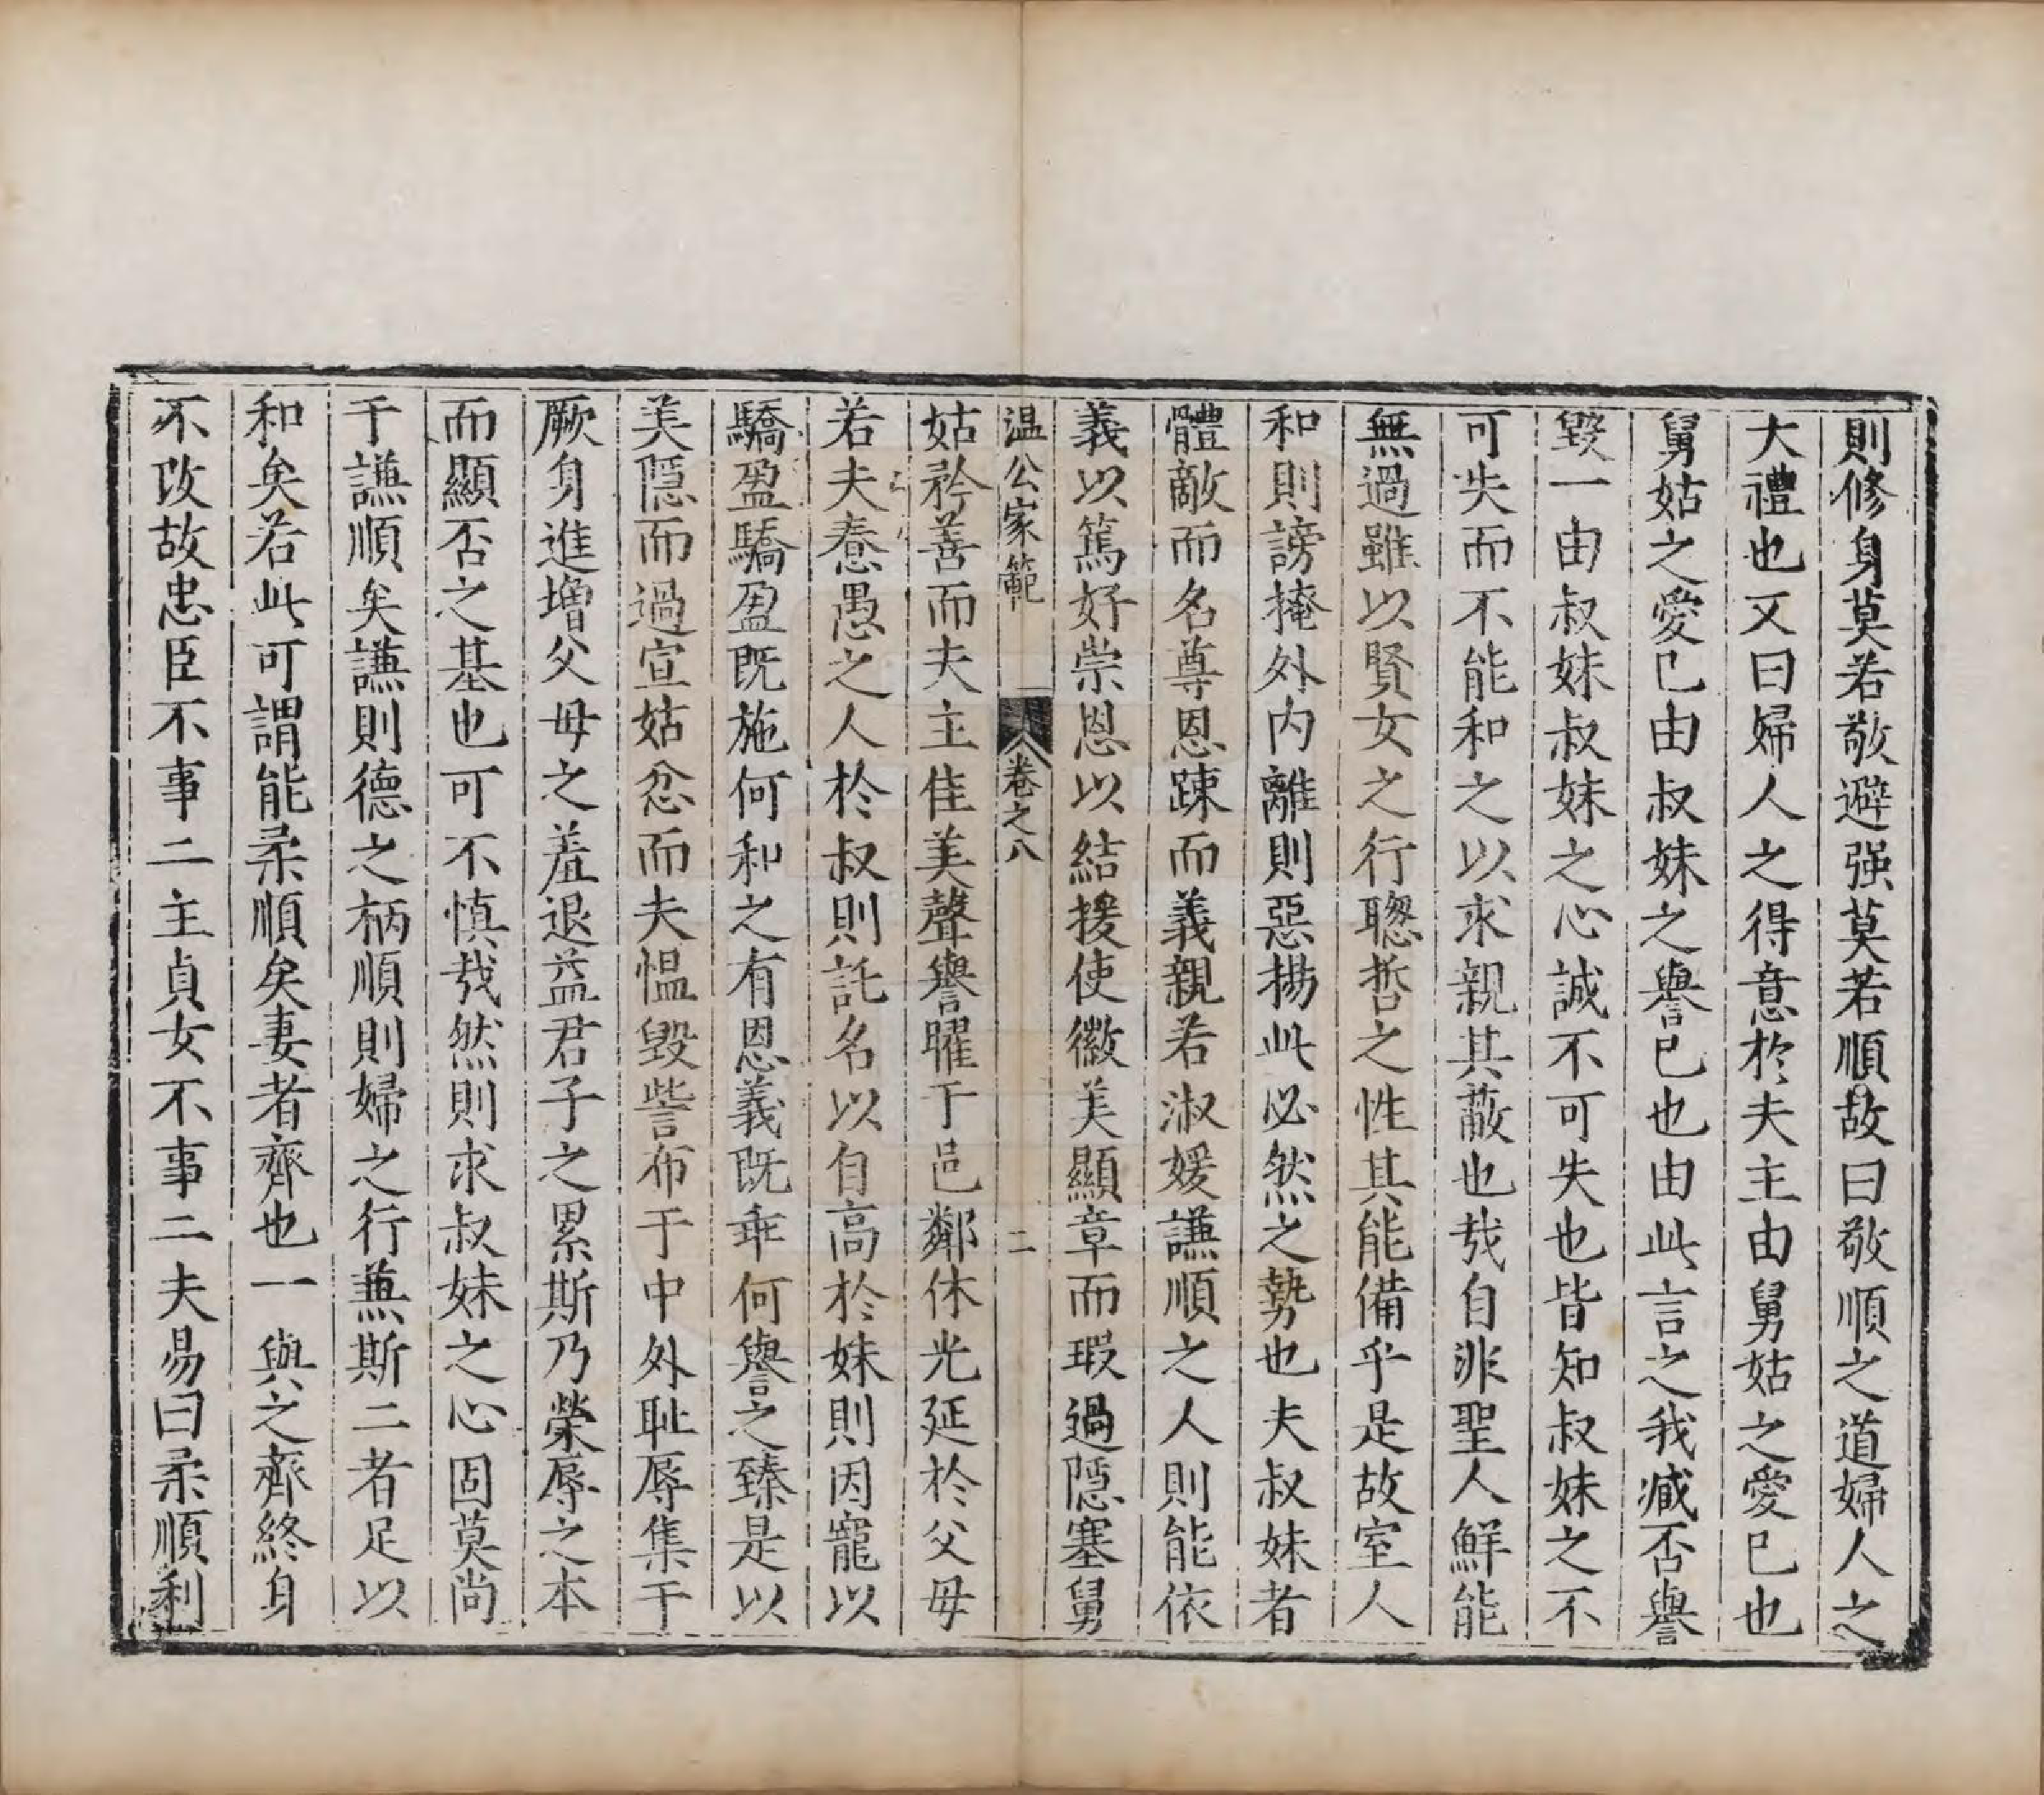 則修身莫若敬避强莫若順故曰敬順之道婦人之
大禮也又曰婦人之得意於夫主由舅姑之愛已也
舅姑之愛已由叔妹之譽已也由此言之我臧否譽
毀一由叔妹叔妹之心誠不可失也皆知叔妹之不
可失而不能和之以求親其蔽也哉自非聖人鮮能
無過雖以賢女之行聰哲之性其能備乎是故室人
和則謗掩外内離則惡揚此必然之勢也夫叔妹者
體敵而名尊恩踈而義親若淑媛謙順之人則能依
義以篤好崇恩以結援使徽美顯章而瑕過隱塞舅
温公家範 卷之八 二
姑矜善而夫主佳美聲譽曜于邑鄰休光延於父母
若夫惷愚之人於叔則託名以自高於妹則因寵以
驕盈驕盈既施何和之有恩義既乖何譽之臻是以
美隱而過宣姑忿而夫愠毀訾布于中外耻辱集于
厥身進增父母之羞退益君子之累斯乃榮辱之本
而顯否之基也可不慎哉然則求叔妹之心固莫尚
于謙順矣謙則德之柄順則婦之行兼斯二者足以
和矣若此可謂能柔順矣妻者齊也一與之齊終身
不改故忠臣不事二主貞女不事二夫易曰柔順利